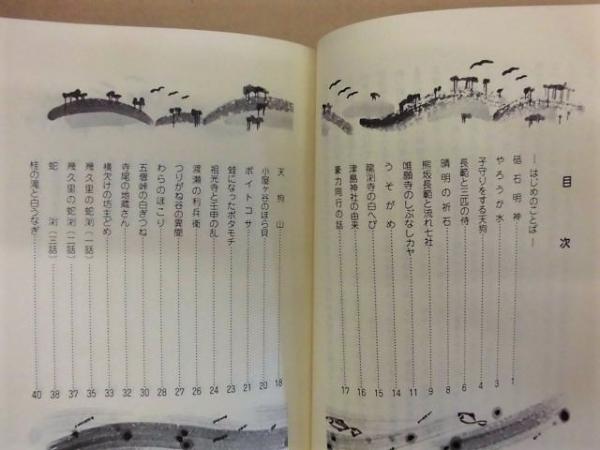 目次
―はじめのことば―
砥石明神 1
やろうか水 3
子守りをする天狗 4
長範と三匹の侍 6
晴明の祈石 8
熊坂長範と流れ七社 9
唯願寺のしぶなしカヤ 11
うそがめ 14
龍渕寺の白へび 15
津島神社の由来 16
豪力同行の話 17
天狗山 18
小屋ヶ谷のほら貝 20
ボイトコサ 21
蛙になったボタモチ 23
祖光寺と壬申の乱 24
渡瀬の利兵衛 26
つりがね谷の異聞 27
わらのほこり 28
五僧峠の白ぎつね 30
寺尾の地蔵さん 32
橋欠けの坊主どめ 33
幾久里の蛇渕（一話） 35
幾久里の蛇渕（二話） 37
蛇渕（三話） 38
桂の滝と白うなぎ 40